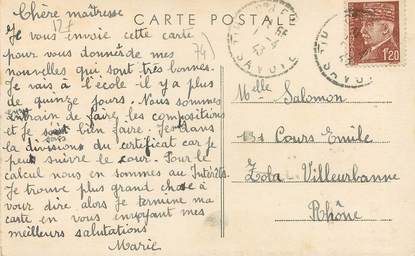 Chère maîtresse
CARTE POSTALE
Je vous envoie cette carte
pour vous donner de mes
nouvelles qui sont très bonnes.
Je vais à l'école il y a plus
de quinze jours. Nous sommes
entrain de faire les compositions
et je bien faire. Je dans
la divisions du certificat car je
peux suivre le cour. Pour le
calcul nous en sommes au Intérêts.
Je trouve plus grand chose à
vour dire alors je termine ma
carte en vous envoyant mes
meilleurs salutations
Marie
74
SAVOIE
SAVOIE
1F20
Melle Salomon
131 Cours Emile
Zola Villeurbanne
Rhône